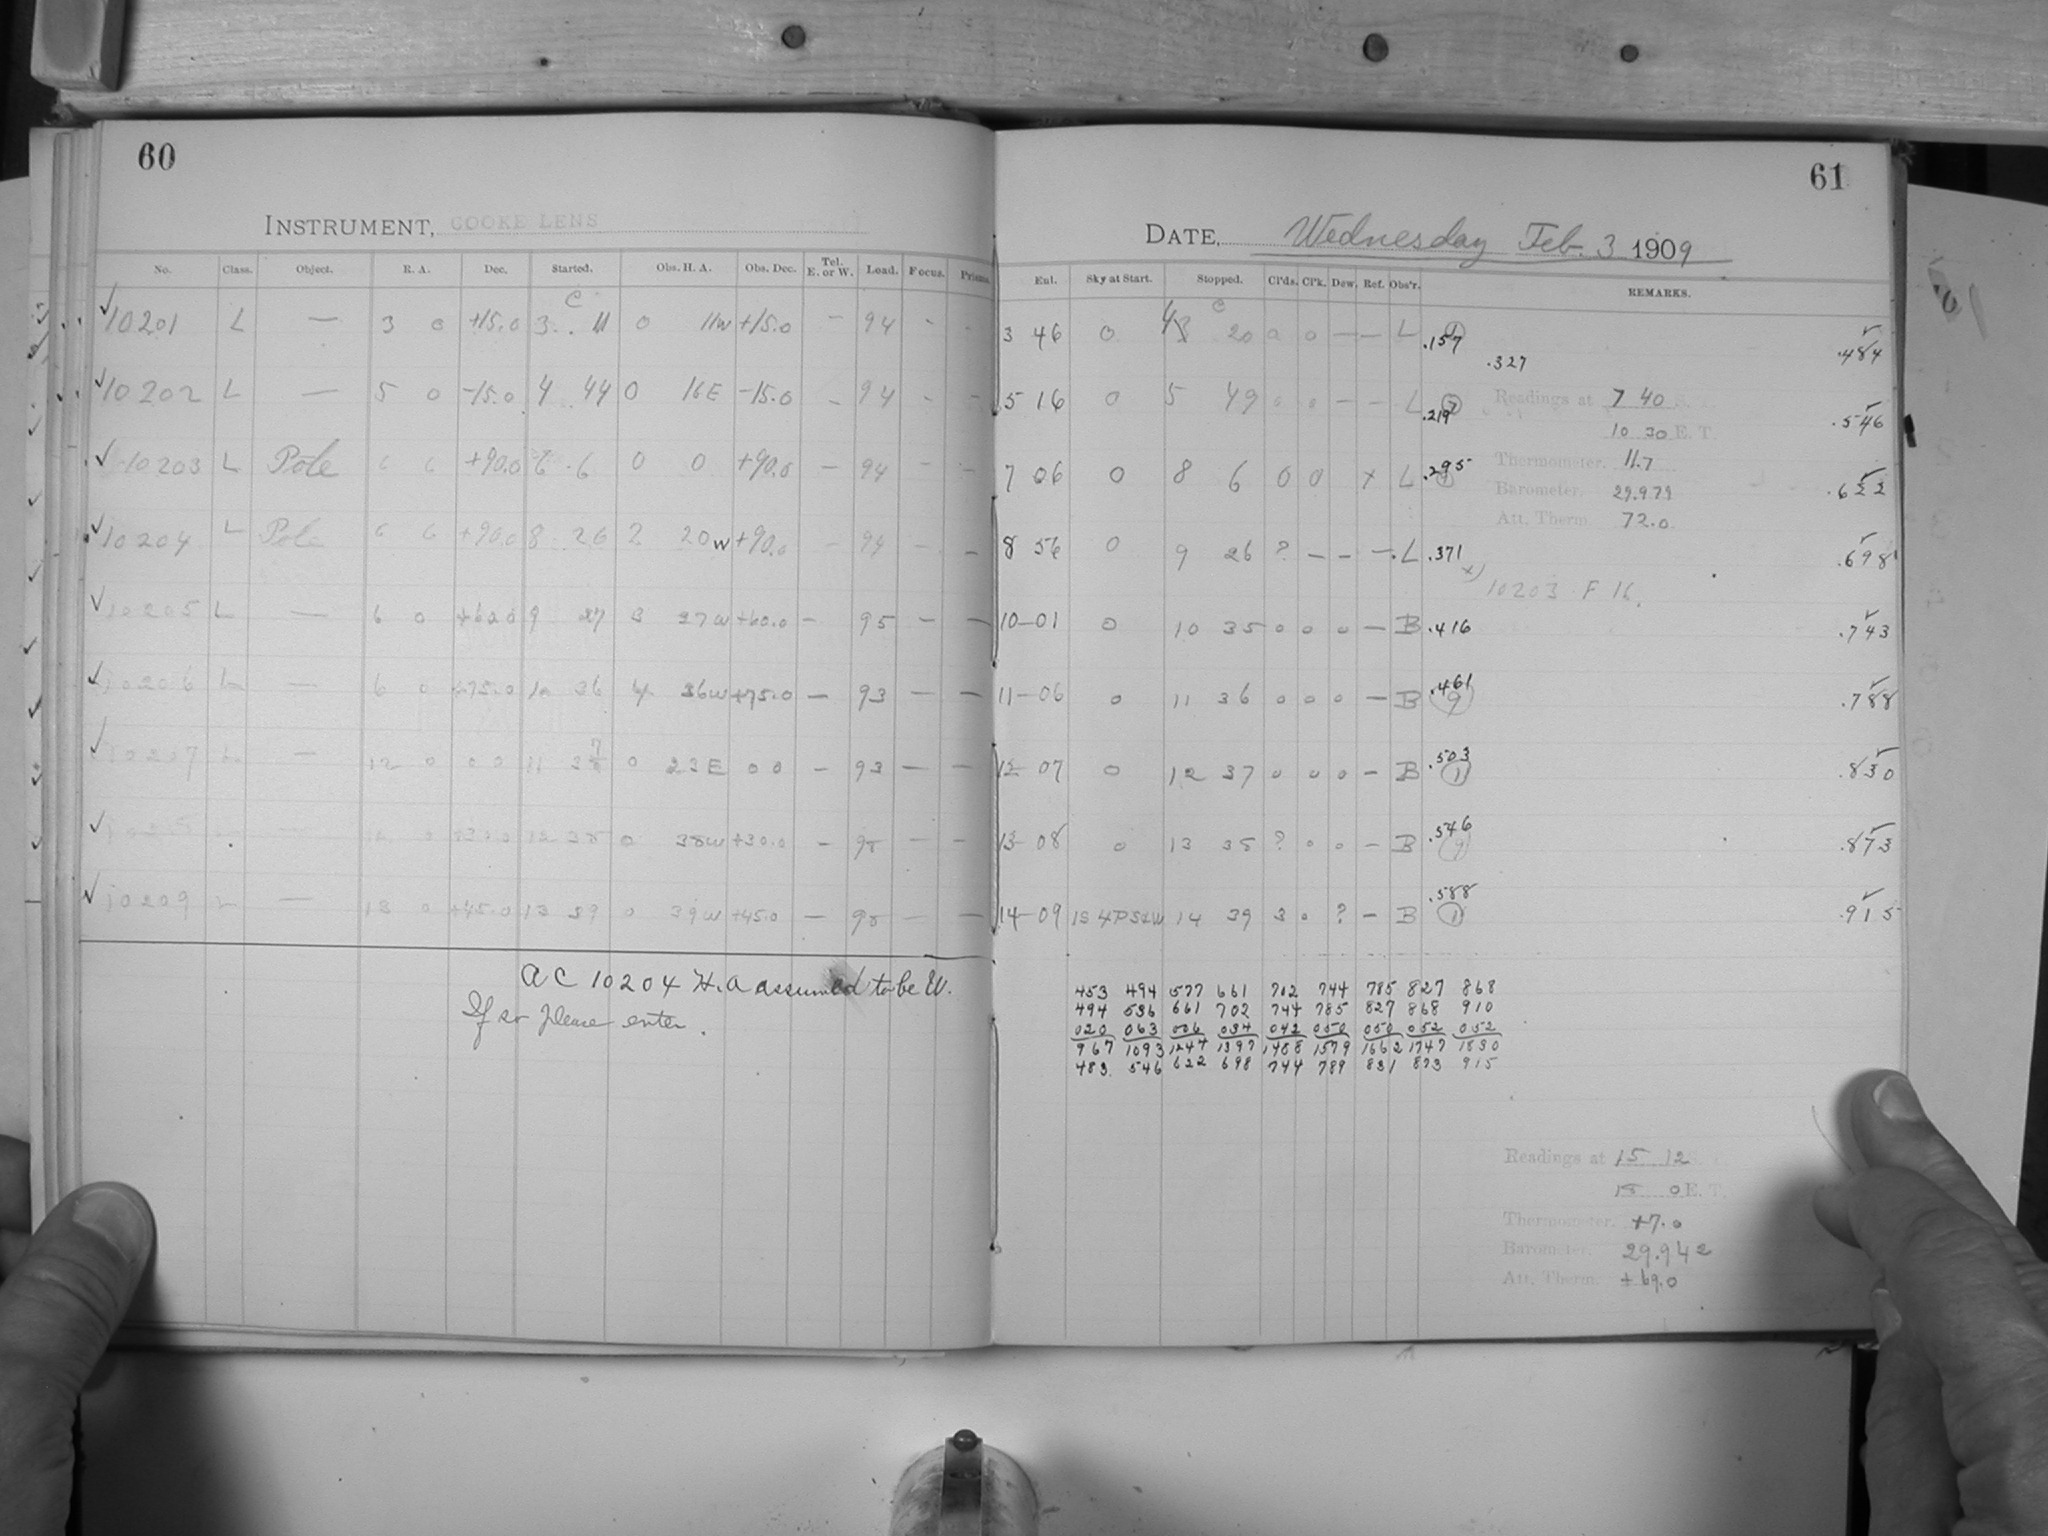 60
INSTRUMENT, COOKE LENS
No. Class. Object. R. A. Dec. Started. Obs. H. A. Obs. Dec. Tel. E. or W. Load. Focus. Prisms.
✓10201 L — 3 0 +15.0 3 11 0 11W +15.0 - 94 - -
✓10202 L — 5 0 -15.0 4 44 0 16E -15.0 - 94 - -
✓10203 L Pole 6 6 +90.0 6 6 0 0 +90.0 - 94 - -
✓10204 L Pole 6 6 +90.0 8 26 2 20W +90.0 - 94 - -
✓10205 L — 6 0 9 27 3 27W +60.0 - 95 - -
✓10206 L — 6 0 +75.0 10 36 4 36W +75.0 - 93 - -
✓10207 L — 12 0 0 0 11 37 0 23E 0 0 - 93 - -
✓ — 12 0 +30.0 12 38 0 38W +30.0 - 95 - -
✓10209 L — 13 0 +45.0 13 39 0 39W +45.0 - 95 - -
A C 10204 H.A assumed to be W.
If so please enter.
61
DATE, Wednesday Feb. 3 1909
Ext. Sky at Start. Stopped. Cl'ds. Cl'k. Dew. Ref. Obs'r. REMARKS.
3 46 0 4 20 0 0 — — L .157 .484
.327
5 16 0 5 49 0 0 - - L .219 .546
Readings at 7 40 S.
10 30 E. T.
7 06 0 8 6 0 0 x L .295 .622
Thermometer. 11.7
Barometer. 29.979
Att. Therm. 72.0
8 56 0 9 26 ? - - - L .371 .698
x) 10203 F 16.
10-01 0 10 35 0 0 0 - B .416 .743
11-06 0 11 36 0 0 0 - B .461 9 .788
12 07 0 12 37 0 0 0 - B .503 1 .830
13-08 0 13 38 ? 0 0 - B .546 9 .873
14-09 14 39 3 0 ? - B .588 1 .915
453 494 577 661 702 744 785 827 868
494 536 661 702 744 785 827 868 910
020 063 006 034 042 050 050 052 052
967 1093 1247 1397 1488 1579 1662 1747 1830
483 546 622 698 744 789 831 873 915
Readings at 15 12
18 0 E. T.
Thermometer. +7.0
Barometer. 29.942
Att. Therm. +69.0